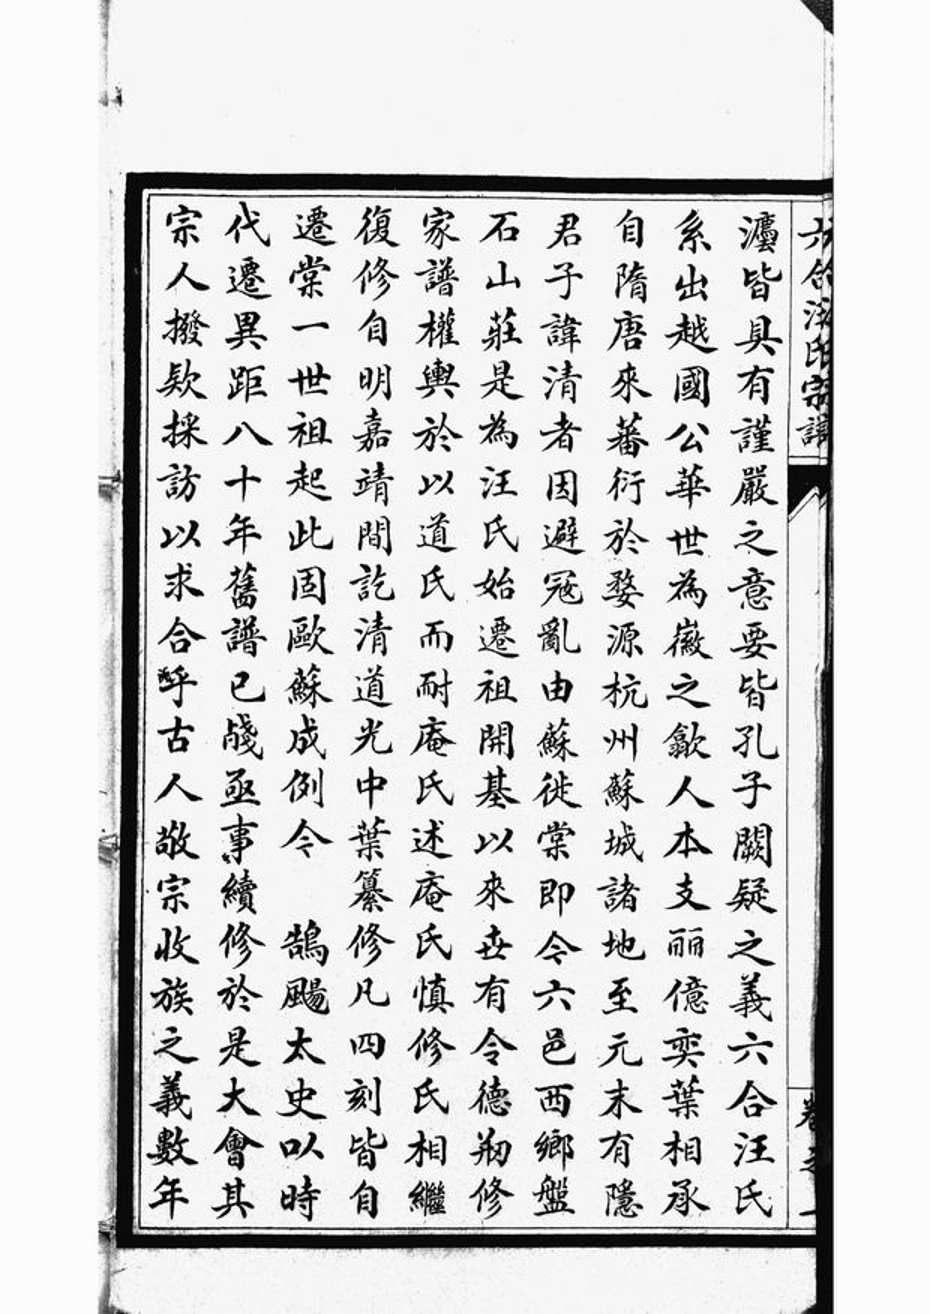 六合汪氏宗譜
卷之一
灋皆具有謹嚴之意要皆孔子闕疑之義六合汪氏
系出越國公華世為徽之歙人本支丽億奕葉相承
自隋唐來蕃衍於婺源杭州蘇城諸地至元末有隱
君子諱清者因避寇亂由蘇徙棠即今六邑西鄉盤
石山莊是為汪氏始遷祖開基以來世有令德刱修
家譜權輿於以道氏而耐庵氏述庵氏慎修氏相繼
復修自明嘉靖間訖清道光中葉纂修凡四刻皆自
遷棠一世祖起此固歐蘇成例今　鵠颺太史以時
代遷異距八十年舊譜已殘亟事續修於是大會其
宗人撥欵採訪以求合乎古人敬宗收族之義數年